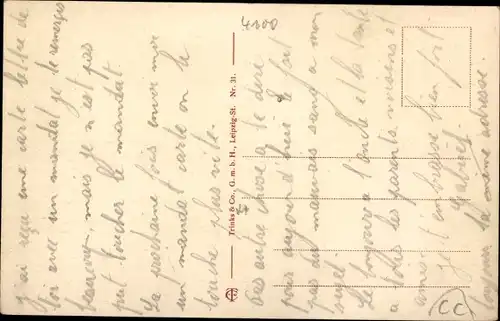 4200
j'ai reçu une carte lettre de
toi avec un mandat je te remercie
beaucoup, mais je n'est pas
put toucher le mandat.
La prochaine fois envoie moi
un mandat carte on le
touche plus vite.
Trinks & Co., G. m. b. H., Leipzig-St. Nr. 31.
Pas autre chose a te dire
pour aujourd'hui le fait
pas du mauvais sang a mon
sujet.
Le bonjour a l'oncle et la tante
a tous les parents voisins et
amis. je t'embrasse bien fort
toujours la meme adresse.
CC